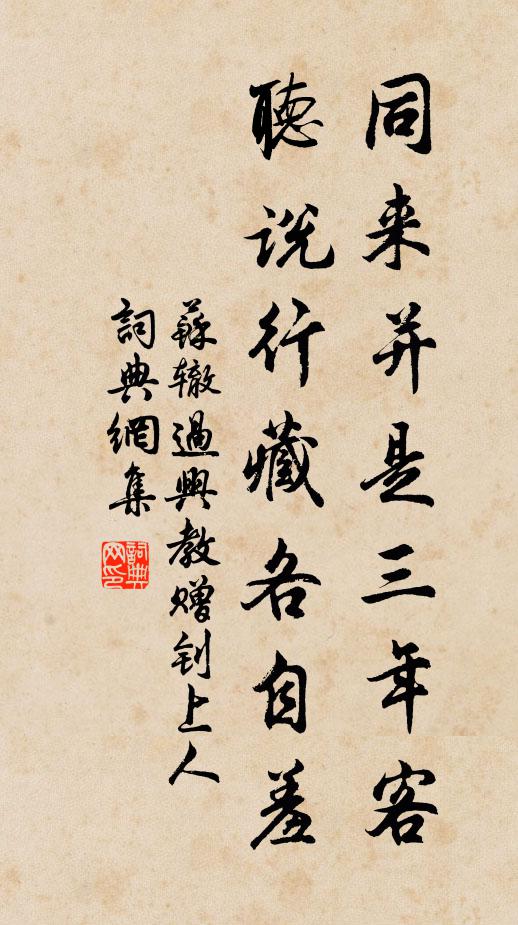 同来并是三年客
聴说行藏各自羞
蘇辙過興教赠钊上人
詞典網集
詞典网印